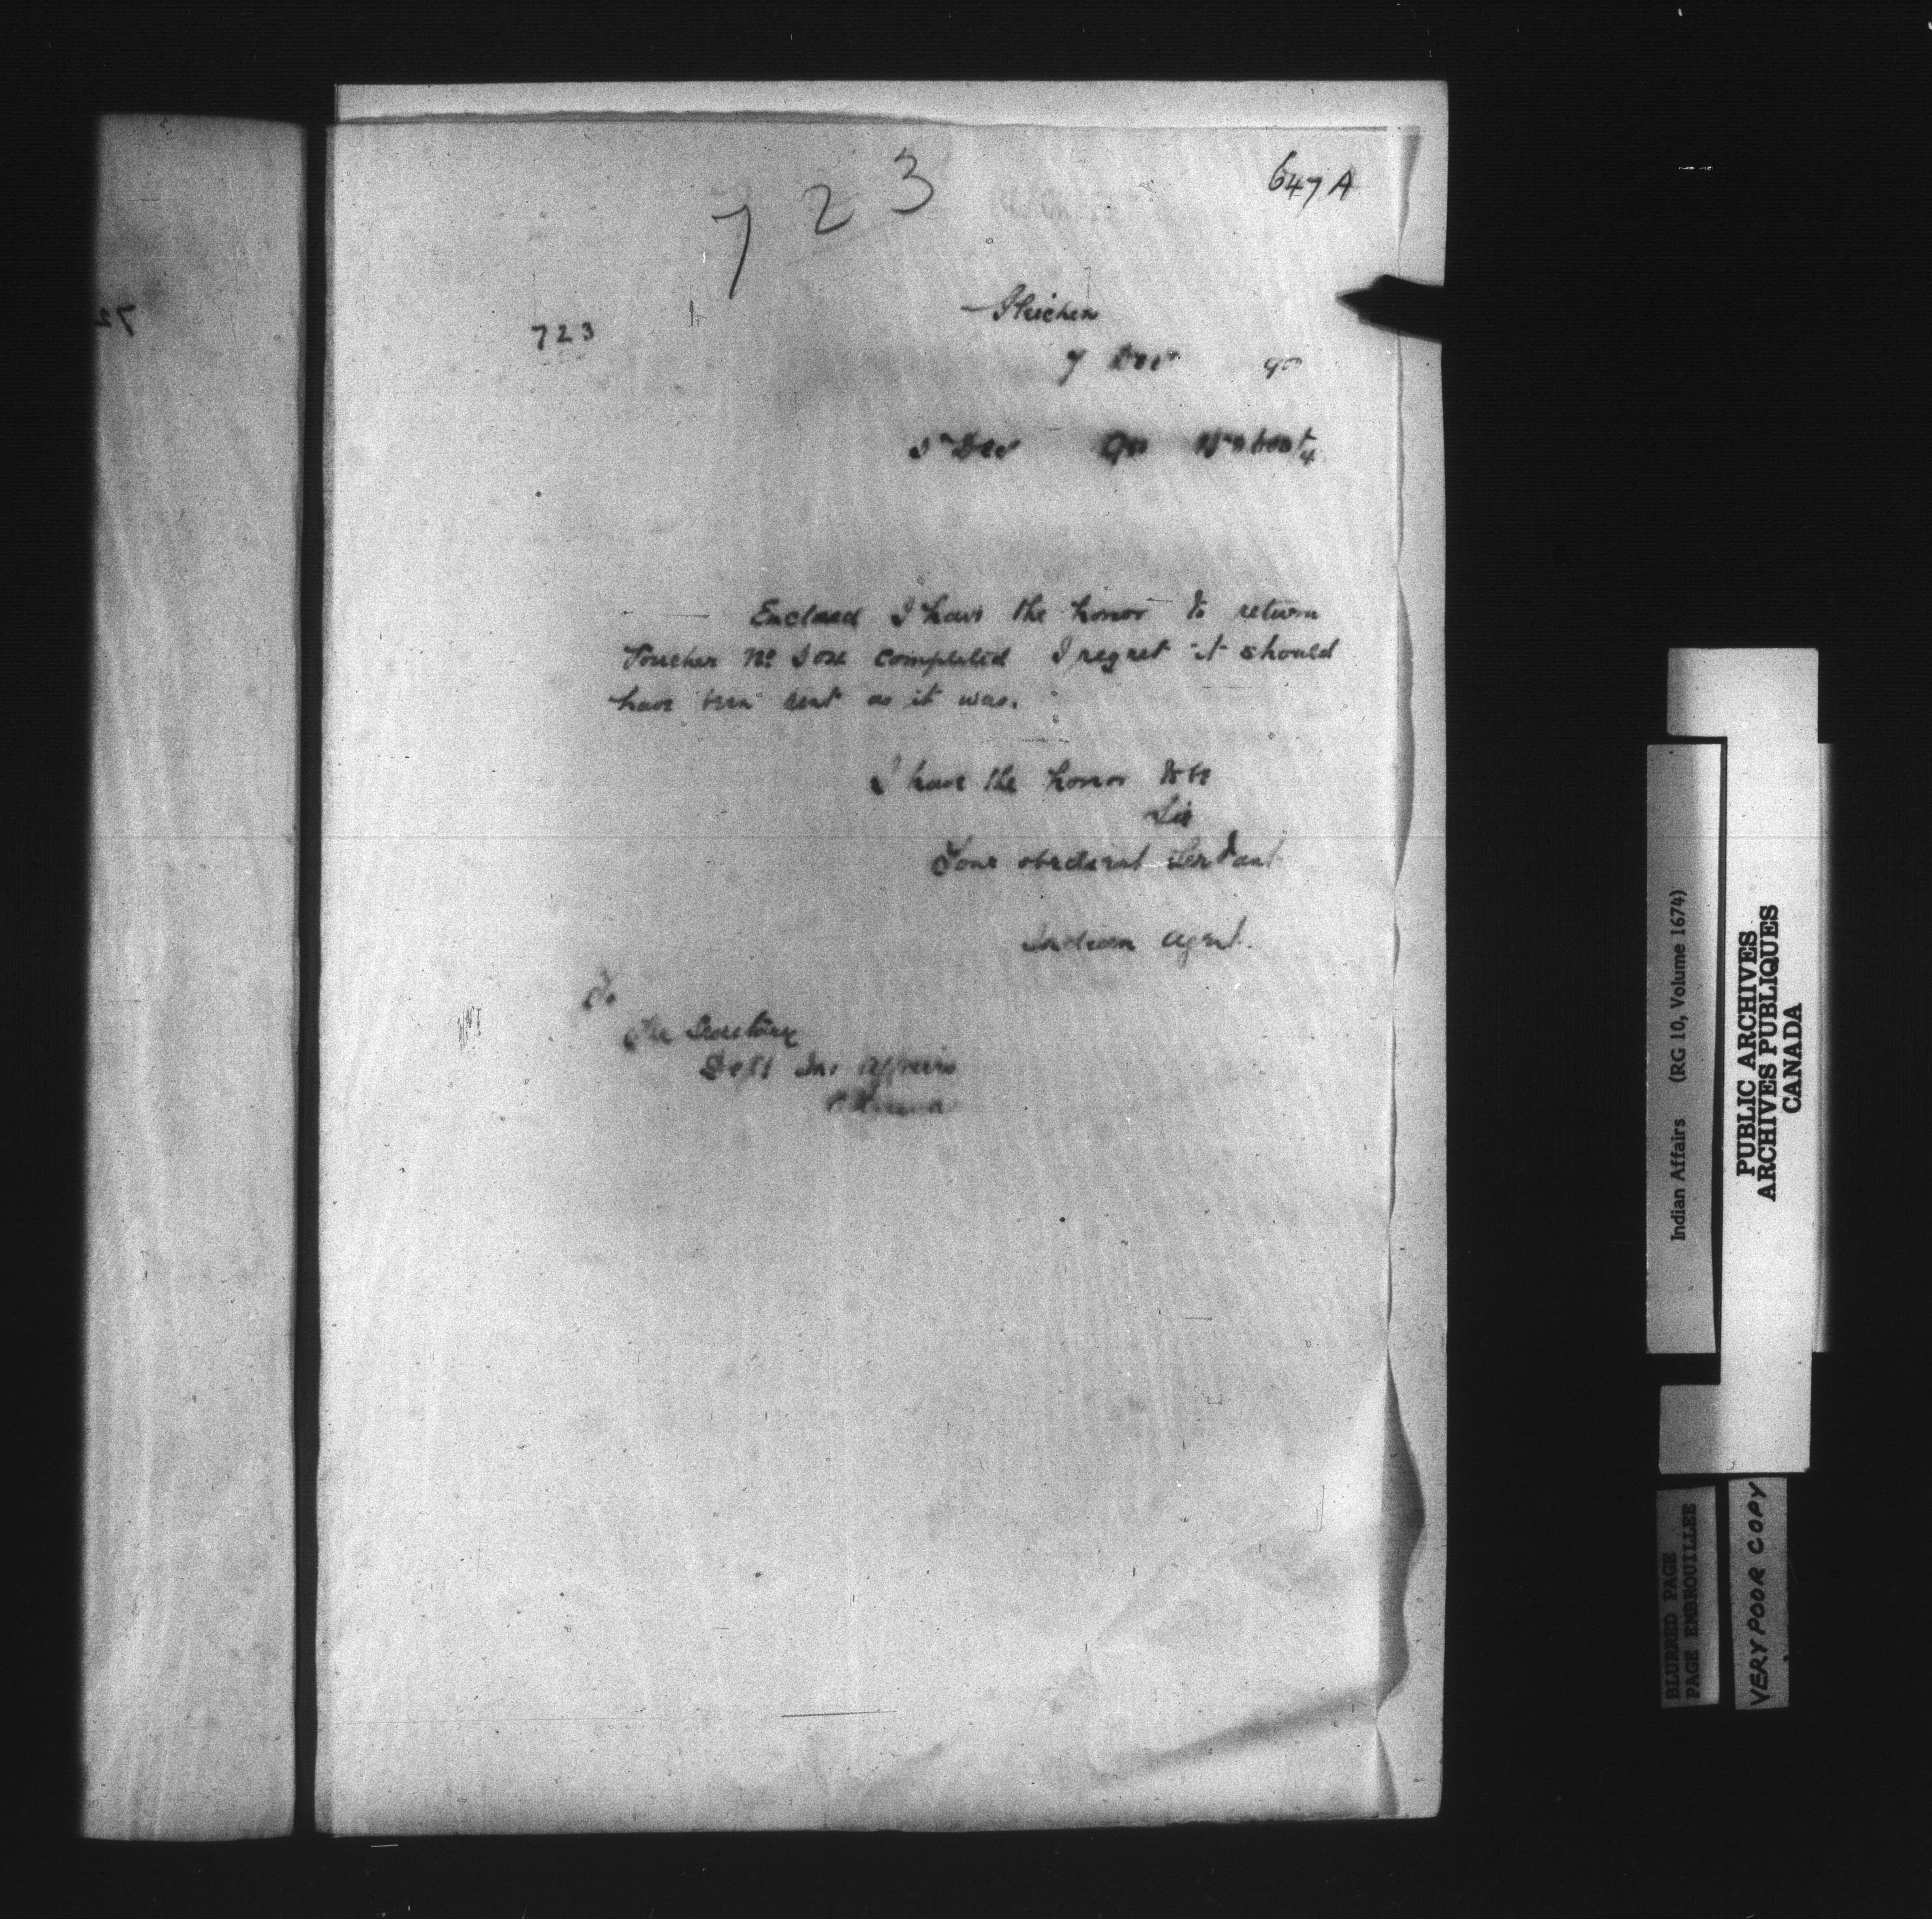 723
647 A
723
Gleichen
7 Dec 90
Dec 90
Enclosed I have the honor to return
Voucher No completed I regret it should
have been sent as it was.
I have the honor to be
Sir
Your obedient Servant
Indian Agent.
To
The Secretary
Dept Ind Affairs
Ottawa
Indian Affairs (RG 10, Volume 1674)
PUBLIC ARCHIVES
ARCHIVES PUBLIQUES
CANADA
BLURRED PAGE
PAGE EMBROUILLEE
VERY POOR COPY